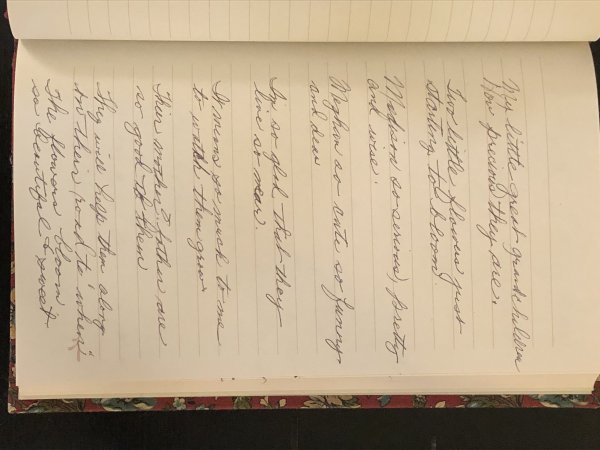 My little great grandchildren
How precious they are.
Two little flowers just
starting to bloom
Madison so serious, pretty
and wise.
Meghan so cute so funny
and dear
I'm so glad that they
live so near.
It means so much to me
to watch them grow
Their mother & father are
so good to them
They will help them along
their road to "where"
The flowers bloom
so beautiful & sweet